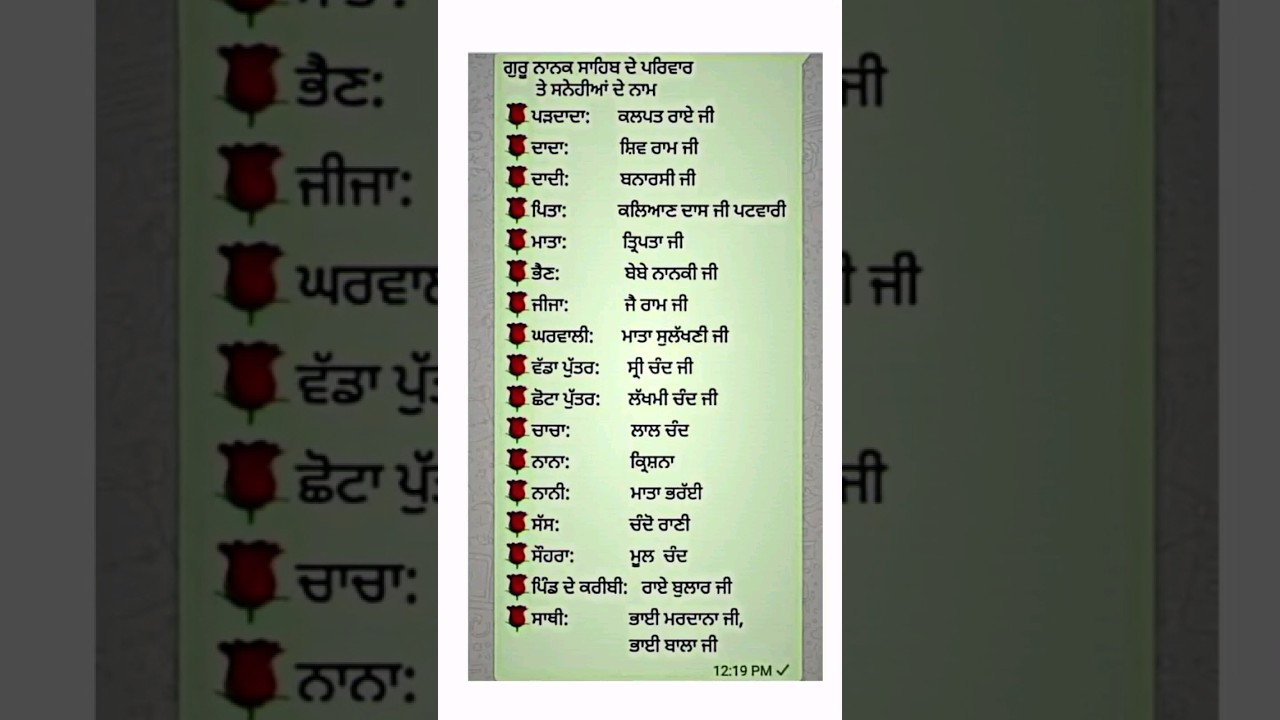 ਗੁਰੂ ਨਾਨਕ ਸਾਹਿਬ ਦੇ ਪਰਿਵਾਰ
ਤੇ ਸਨੇਹੀਆਂ ਦੇ ਨਾਮ
ਪੜਦਾਦਾ: ਕਲਪਤ ਰਾਏ ਜੀ
ਦਾਦਾ: ਸ਼ਿਵ ਰਾਮ ਜੀ
ਦਾਦੀ: ਬਨਾਰਸੀ ਜੀ
ਪਿਤਾ: ਕਲਿਆਣ ਦਾਸ ਜੀ ਪਟਵਾਰੀ
ਮਾਤਾ: ਤ੍ਰਿਪਤਾ ਜੀ
ਭੈਣ: ਬੇਬੇ ਨਾਨਕੀ ਜੀ
ਜੀਜਾ: ਜੈ ਰਾਮ ਜੀ
ਘਰਵਾਲੀ: ਮਾਤਾ ਸੁਲੱਖਣੀ ਜੀ
ਵੱਡਾ ਪੁੱਤਰ: ਸ੍ਰੀ ਚੰਦ ਜੀ
ਛੋਟਾ ਪੁੱਤਰ: ਲੱਖਮੀ ਚੰਦ ਜੀ
ਚਾਚਾ: ਲਾਲ ਚੰਦ
ਨਾਨਾ: ਕ੍ਰਿਸ਼ਨਾ
ਨਾਨੀ: ਮਾਤਾ ਭਰੱਈ
ਸੱਸ: ਚੰਦੋ ਰਾਣੀ
ਸੌਹਰਾ: ਮੂਲ ਚੰਦ
ਪਿੰਡ ਦੇ ਕਰੀਬੀ: ਰਾਏ ਬੁਲਾਰ ਜੀ
ਸਾਥੀ: ਭਾਈ ਮਰਦਾਨਾ ਜੀ,
ਭਾਈ ਬਾਲਾ ਜੀ
12:19 PM
ਭੈਣ:
ਜੀਜਾ:
ਚਾਚਾ:
ਨਾਨਾ: